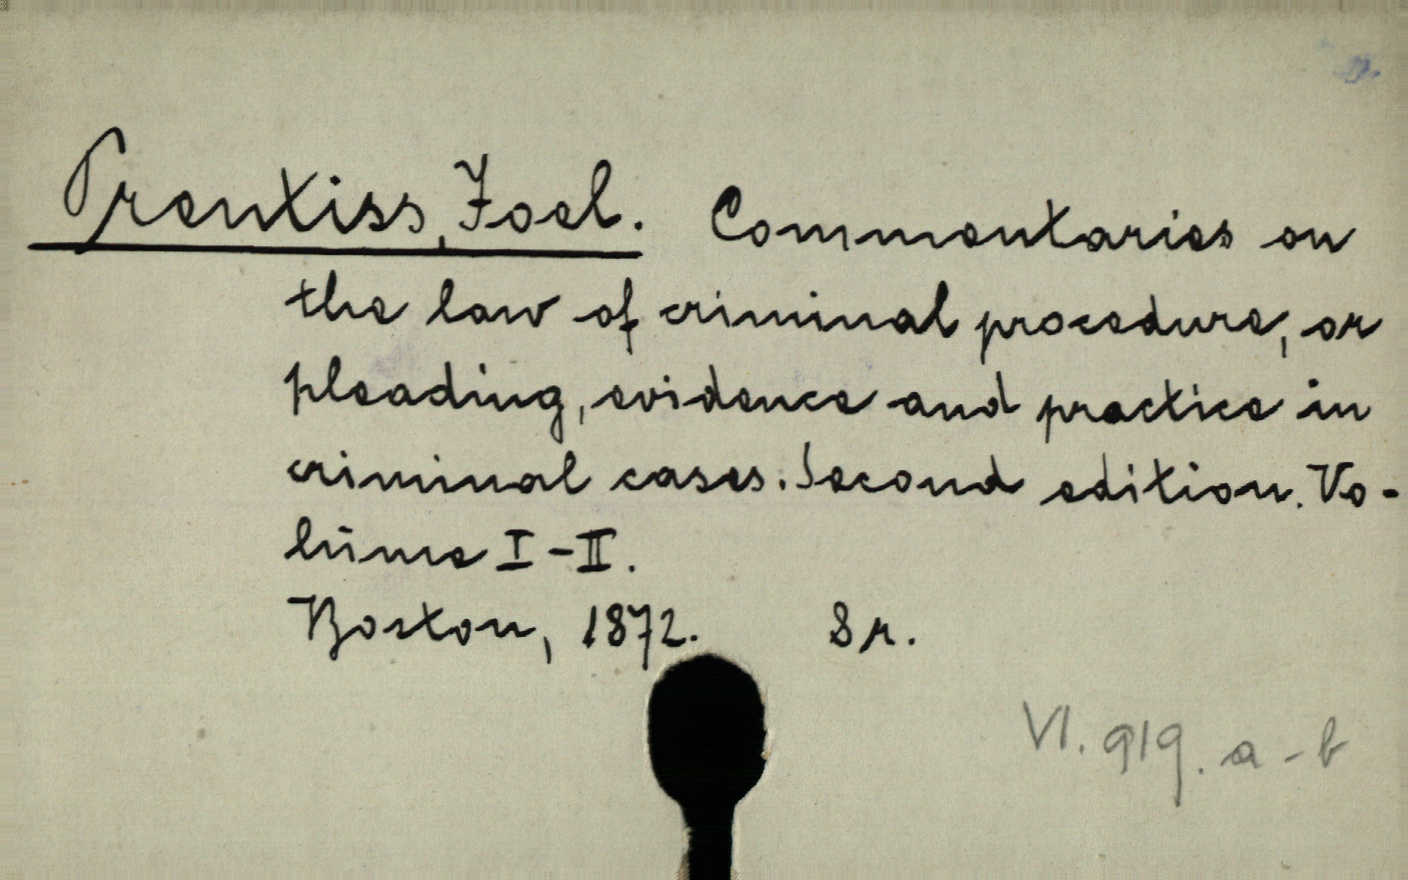 Prentiss, Joel. Commentaries on
the law of criminal procedure, or
pleading, evidence and practice in
criminal cases. Second edition. Vo-
lume I-II.
Boston, 1872. 8r.
VI. 919. a-b